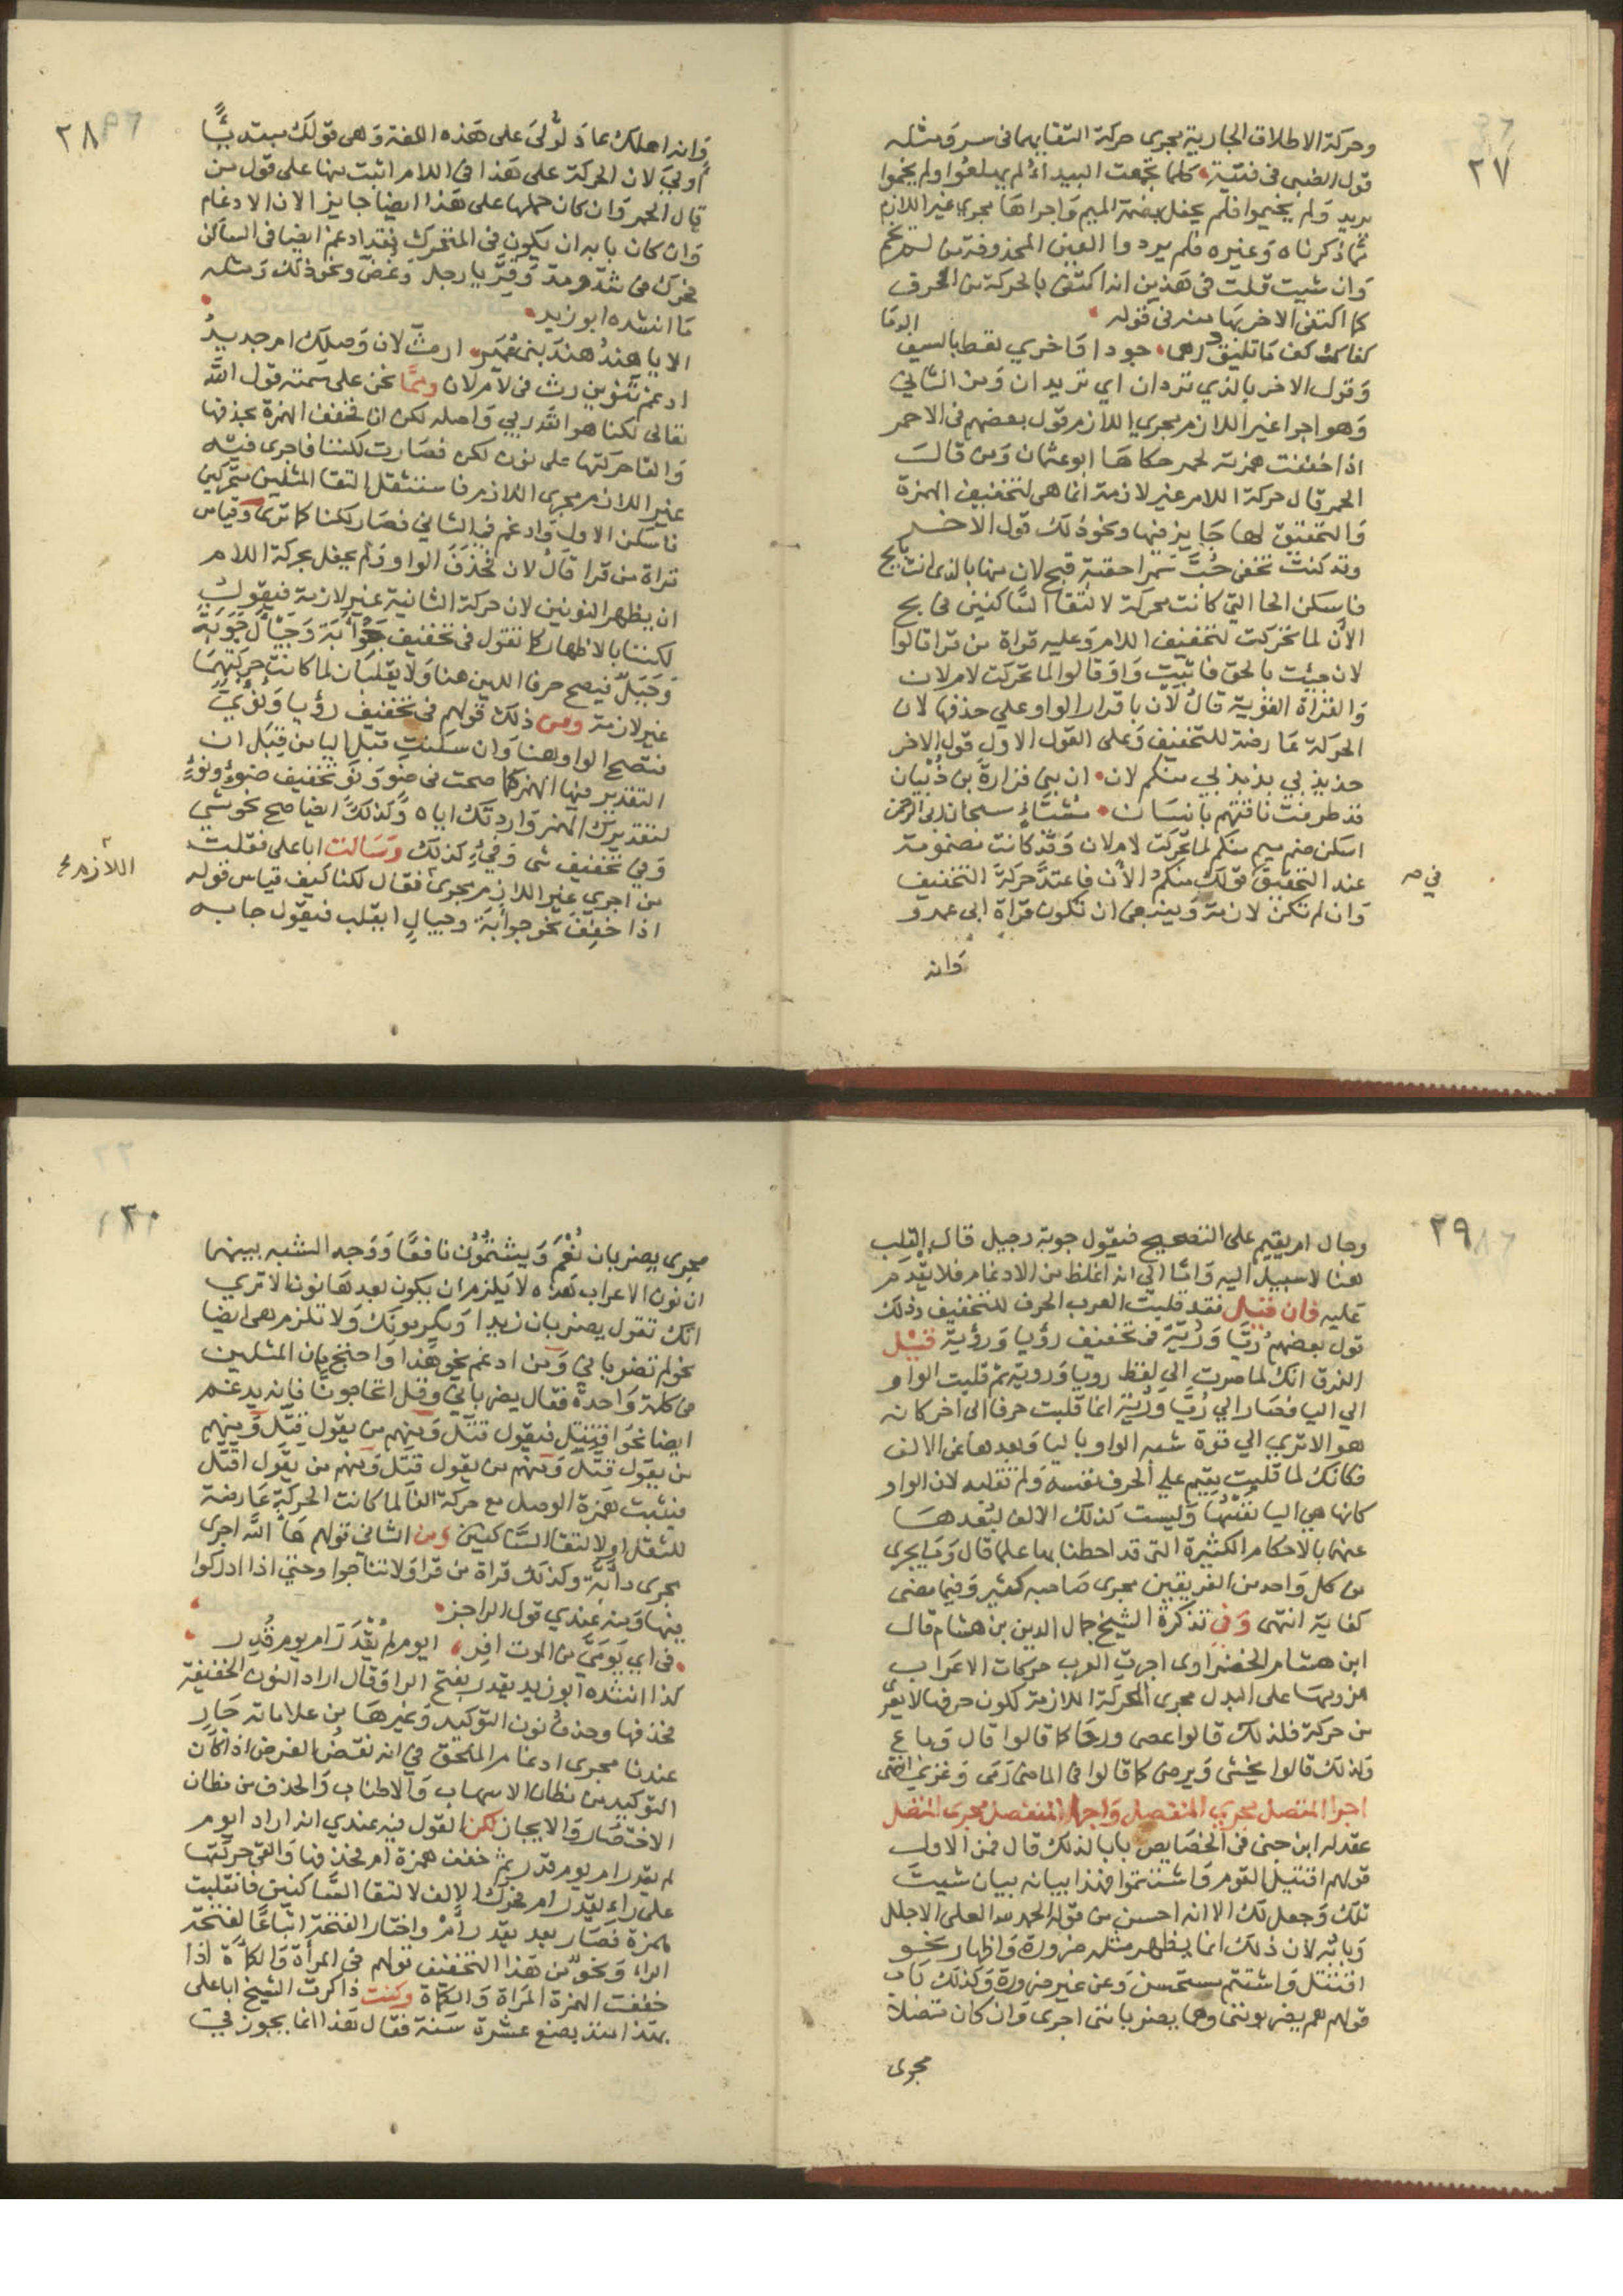 ٢٧
وحركة الاطلاق الجارية مجرى حركة التقايهما في سر ومثله
قول الضبي في فتية كلما تجمعت البيداء لم يهلعوا ولم يخموا
يريد ولم يخيموا فلم يحفل بضمة الميم واجراها مجرى غير اللازم
مما ذكرناه وغيره فلم يردوا العين المحذوفة من لم يخم
وان شيت قلت في هذين انه اكتفى بالحركة من الحرف
كما اكتفى الاخر بها منه في قوله
كفاك كف ما تليق درهما جودا واخرى تعط بالسيف الدما
وقول الاخر بالذي تردان اي تريدان ومن الثاني
وهو اجرا غير اللازم مجرى اللازم قول بعضهم في الاحمر
اذا خففت همزته لحمر حكاها ابو عثمان ومن قالـ
الحمر قال حركة اللام غير لازمة انما هي لتخفيف الهمزة
والتحقيق لها جايز فيها ونحو ذلك قول الاخر
وقد كنت تخفي حب سمرا حقبة فبح لان منها بالذي انت بايح
فاسكن الحا التي كانت محركة لالتقا الساكنين في بح
الان لما تحركت لتخفيف اللام وعليه قراة من قرا قالوا
لان جئت بالحق فاثبت واو قالوا لما تحركت لام لان
والقراة القوية قال لان باقرار الواو على حذفها لان
الحركة عارضة للتخفيف وعلى القول الاول قول الاخر
حدبدبي بدبدبي منكم لان ان بني فزارة بن ذبيان
قد طرقت ناقتهم بانسان مشناء سبحان ربي الرحمن
اسكن ضم ميم منكم لما تحركت لام لان وقد كانت مضمومة
عند التحقيق في قولك منكم الان فاعتد حركة التخفيف
وان لم تكن لازمة وينبغي ان تكون قراة ابي عمرو
وانه
٢٨
وانه اهلك عاد لولى على هذه اللغة وهي قولك مبتدئا
اولى لان الحركة على هذا في اللام اثبت منها على قول من
قال الحمر وان كان حملها على هذا ايضا جايز الان الادغام
وان كان بابه ان يكون في المتحرك فقد ادغم ايضا في الساكن
فحرك في شد ومد وفر يا رجل وغض ونحو ذلك ومثله
ما انشده ابو زيد
الا يا هند هند بني عمير ارث لان وصلك ام جديد
ادغم تنوين رث في لام لان ومما نحن على سمته قول الله
تعالى لكنا هو الله ربي واصله لكن انا فخفف الهمزة بحذفها
والقا حركتها على نون لكن فصارت لكننا فاجرى فيه
غير اللازم مجرى اللازم فاستثقل التقا المثلين متحركين
فاسكن الاول وادغم في الثاني فصار لكنا كما ترى وقياس
قراة من قرا قال لان فحذف الواو ولم يحفل بحركة اللام
ان يظهر النونين لان حركة الثانية غير لازمة فيقول
لكننا بالاظهار كما تقول في تخفيف جوابة وجيأل جوبة
وجيل فيصح حرفا اللين هنا ولا يقلبان لما كانت حركتهما
غير لازمة ومن ذلك قولهم في تخفيف رؤيا ونؤي
فتصح الواو هنا وان سكنت قبل اليا من قبل ان
التقدير فيها الهمز كما صحت في ضو ونو تخفيف ضوء ونوء
لتقديرك الهمز وارادتك اياه وكذلك ايضا صح نحو شي
وفي تخفيف شي وفيء كذلك وسالت ابا على فقلت
من اجرى غير اللازم مجرى اللازم فقال لكنا كيف قياس قوله
اذا خفف نحو جوابة وجيال ايقلب فيقول جابه
٢٩
وجال ام يقيم على التصحيح فيقول جوبة وجيل قال القلب
هنا لا سبيل اليه واوما الى انه اغلظ من الادغام فلا يقدم
عليه فان قيل فقد قلبت العرب الحرف للتخفيف وذلك
قول بعضهم ريا ورية في تخفيف رؤيا ورؤية قيل
الفرق انك لما صرت الى لفظ رويا وروية ثم قلبت الواو
الى اليا فصار الى ريا ورية انما قلبت حرفا الى اخر كانه
هو الا ترى الى قوة شبه الواو باليا وبعدها عن الالف
فكانك لما قلبت مقيم على الحرف نفسه ولم تقلبه لان الواو
كانها هي اليا نفسها وليست كذلك الالف لبعدها
عنهما بالاحكام الكثيرة التي قد احطنا بها علما قال وما يجرى
من كل واحد من الفريقين مجرى صاحبه كثير وفيما مضى
كفاية انتهى وفي تذكرة الشيخ جمال الدين بن هشام قال
ابن هشام الخضراوى اجرت العرب حركات الاعراب
من كل على البدل مجرى الحركة اللازمة لكون حرفها لا يعرى
من حركة فلذلك قالوا عصى ورحا كما قالوا قال وباع
ولذلك قالوا يخشى ويرمى كما قالوا في الماضى رمى وغزى انتهى
اجرا المتصل مجرى المنفصل واجرا المنفصل مجرى المتصل
عقد له ابن جنى في الخصايص بابا لذلك قال فمن الاول
قولهم اقتتل القوم واشتتموا فهذا بيانه بيان شيت
تلك وجعل لك الا انه احسن من قوله الحمد لله العلى الاجلل
وبابه لان ذلك انما يظهر مثله ضرورة واظهار نحو
اقتتل واشتتم مستحسن وعن غير ضرورة وكذلك باب
قولهم هم يضربونني وهما يضربانني اجرى وان كان متصلا
مجرى
٣٠
مجرى يضربان نعم ويشتمون نافعا ووجه الشبه بينهما
ان نون الاعراب هذه لا يلزم ان يكون بعدها نون الا ترى
انك تقول يضربان زيدا ويكرمونك ولا تلزم هي ايضا
نحو لم تضربانى ومن ادغم نحو هذا واحتج بان المثلين
في كلمة واحدة فقال يضربانى وقل اتحاجونا فانه يدغم
ايضا نحو اقتتل فيقول قتل ومنهم من يقول قتل ومنهم
من يقول قتل ومنهم من يقول قتل ومنهم من يقول اقتل
فيثبت همزة الوصل مع حركة القاف لما كانت الحركة عارضة
للنقل او لالتقا الساكنين ومن الثاني قولهم ها الله اجرى
مجرى دابة وكذلك قراة من قرا ولا تناجوا وحتى اذا اداركوا
فيها ومنه عندي قول الراجز
في اي يومي من الموت افر ايوم لم يقدر ام يوم قدر
كذا انشده ابو زيد يقدر بفتح الرا وقال اراد النون الخفيفة
فحذفها وحذف نون التوكيد وغيرها من علاماته جار
عندنا مجرى ادغام الملحق في انه نقض الغرض اذ كان
التوكيد من مظان الاسهاب والاطناب والحذف من مظان
الاختصار والايجاز لكن القول فيه عندي انه اراد ايوم
لم يقدر ام يوم قدر ثم خفف همزة ام فحذفها والقى حركتها
على راء يقدر ام فحرك الالف لالتقا الساكنين فانقلبت
همزة فصار يقدر ام واختار الفتحة اتباعا لفتحة
الراء ونحو من هذا التخفيف قولهم في المرأة والكمأة اذا
خففت الهمزة المراة والكماة وكنت ذاكرت الشيخ ابا على
بهذا منذ بضع عشرة سنة فقال هذا انما يجوز في